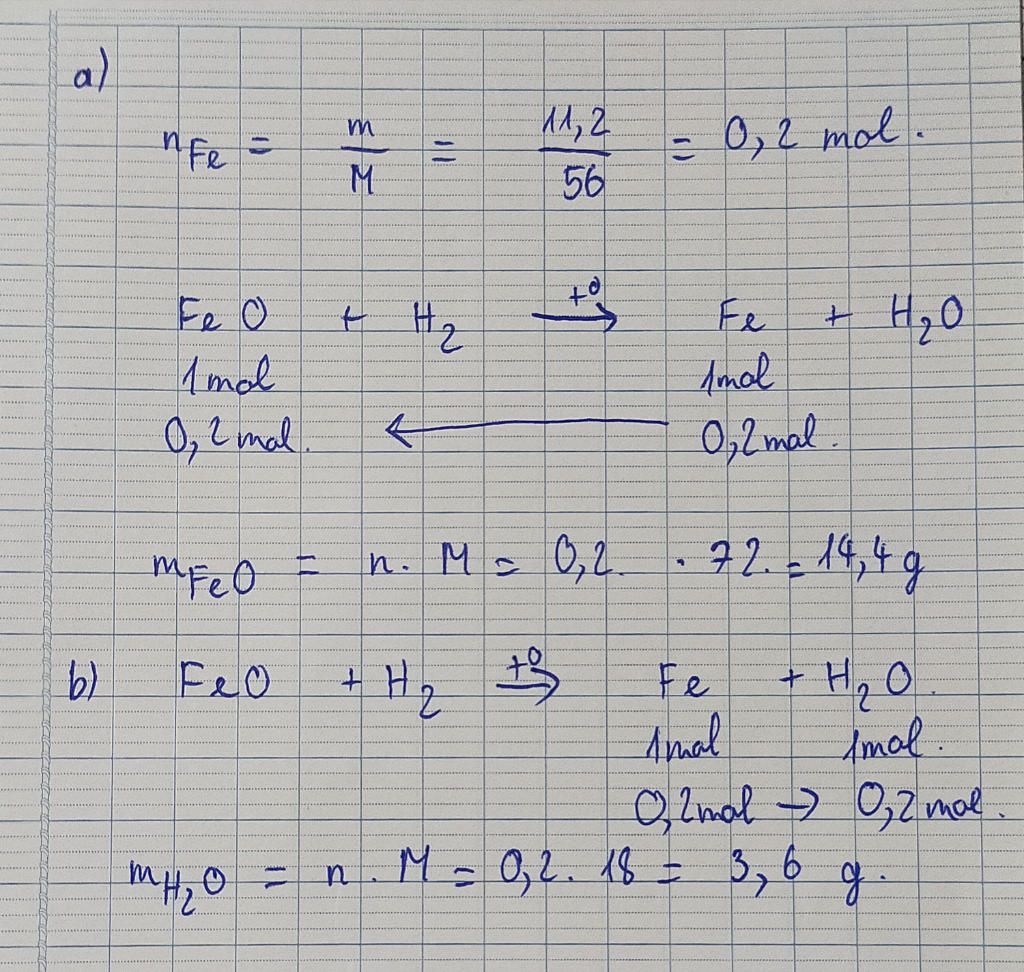 a)
n_Fe = m/M = 11,2/56 = 0,2 mol.
FeO + H₂ —t⁰→ Fe + H₂O
1mol 1mol
0,2mol. ← 0,2mol.
m_FeO = n. M = 0,2. . 72. = 14,4 g
b) FeO + H₂ —t⁰→ Fe + H₂O.
1mol 1mol.
0,2mol → 0,2mol.
m_H₂O = n. M = 0,2. 18 = 3,6 g.